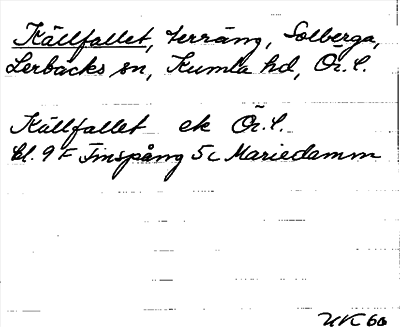 Källfallet, terräng, Solberga,
Lerbäcks sn, Kumla hd, Ör. l.
Källfallet ek Ör. l.
bl. 9 F Finspång 5 c Mariedamm
UK 60